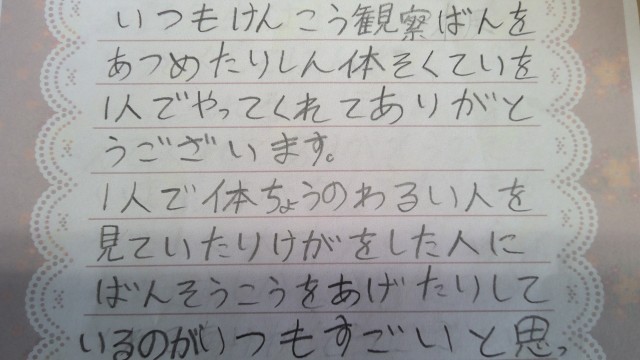 いつもけんこう観察ばんを
あつめたりしん体そくていを
1人でやってくれてありがと
うございます。
1人で体ちょうのわるい人を
見ていたりけがをした人に
ばんそうこうをあげたりして
いるのがいつもすごいと思っ